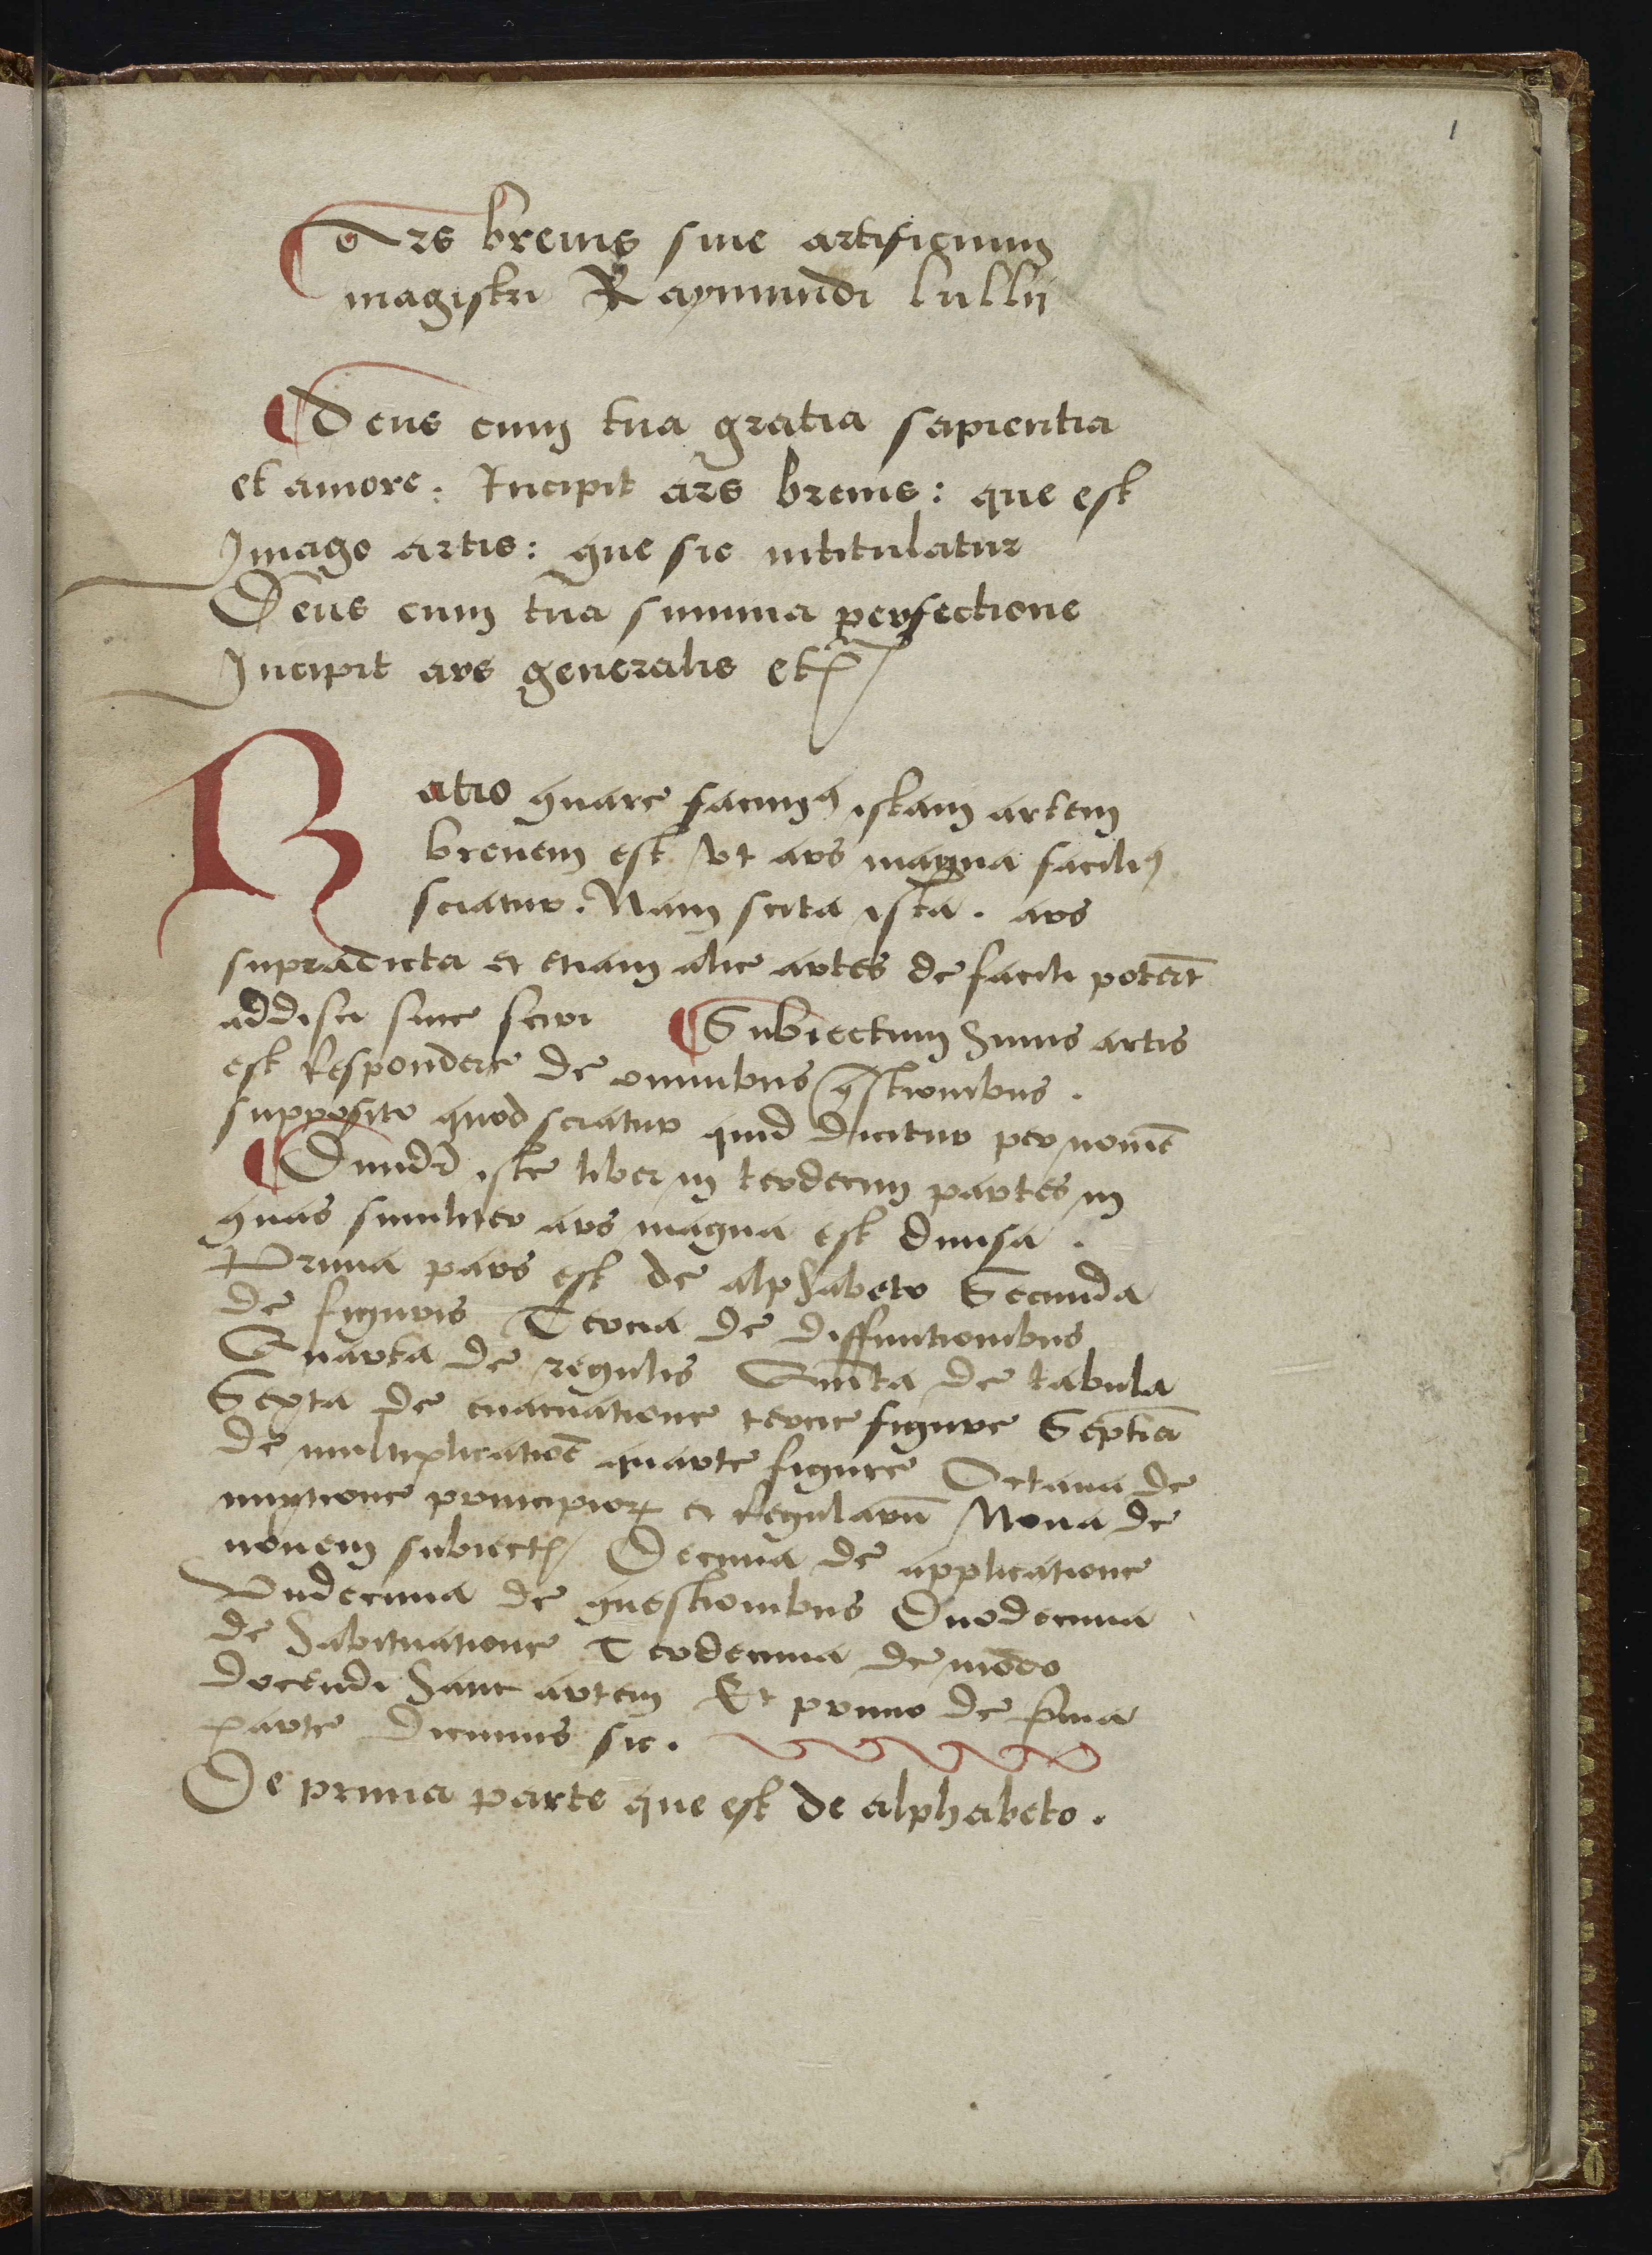 1
Ars breuis siue artificium
magistri Raymundi lullii
Deus cum tua gratia sapientia
et amore: Incipit ars breuis: que est
Jmago artis: que sic intitulatur
Deus cum tua summa perfectione
Jncipit ars generalis etc̃
Ratio quare facimꝰ istam artem
breuem est vt ars magna faciliꝰ
sciatur. Nam scita ista. ars
supradicta et etiam alie artes de facili poterт̃
addisci siue sciri Subiectum huius artis
est Respondere de omnibus q̃stionibus.
supposito quod sciatur quid dicitur per nomē
Diuidr̃ iste liber in terdecim partes in
quas similiter ars magna est diuisa.
Prima pars est de alphabeto Secunda
de figuris Tercia de diffinitionibus
Quarta de regulis Quinta de tabula
Sexta de euacuatione tercie figure Septīa
de multiplicationē quarte figure Octaua de
mixtione principioꝝ et Regularū Nona de
nouem subiectꝭ Decima de applicatione
Vndecima de questionibus Duodecima
de habituatione Terdecima de modo
docendi hanc artem Et primo de p̃ima
parte dicimus sic.
De prima parte que est de alphabeto.